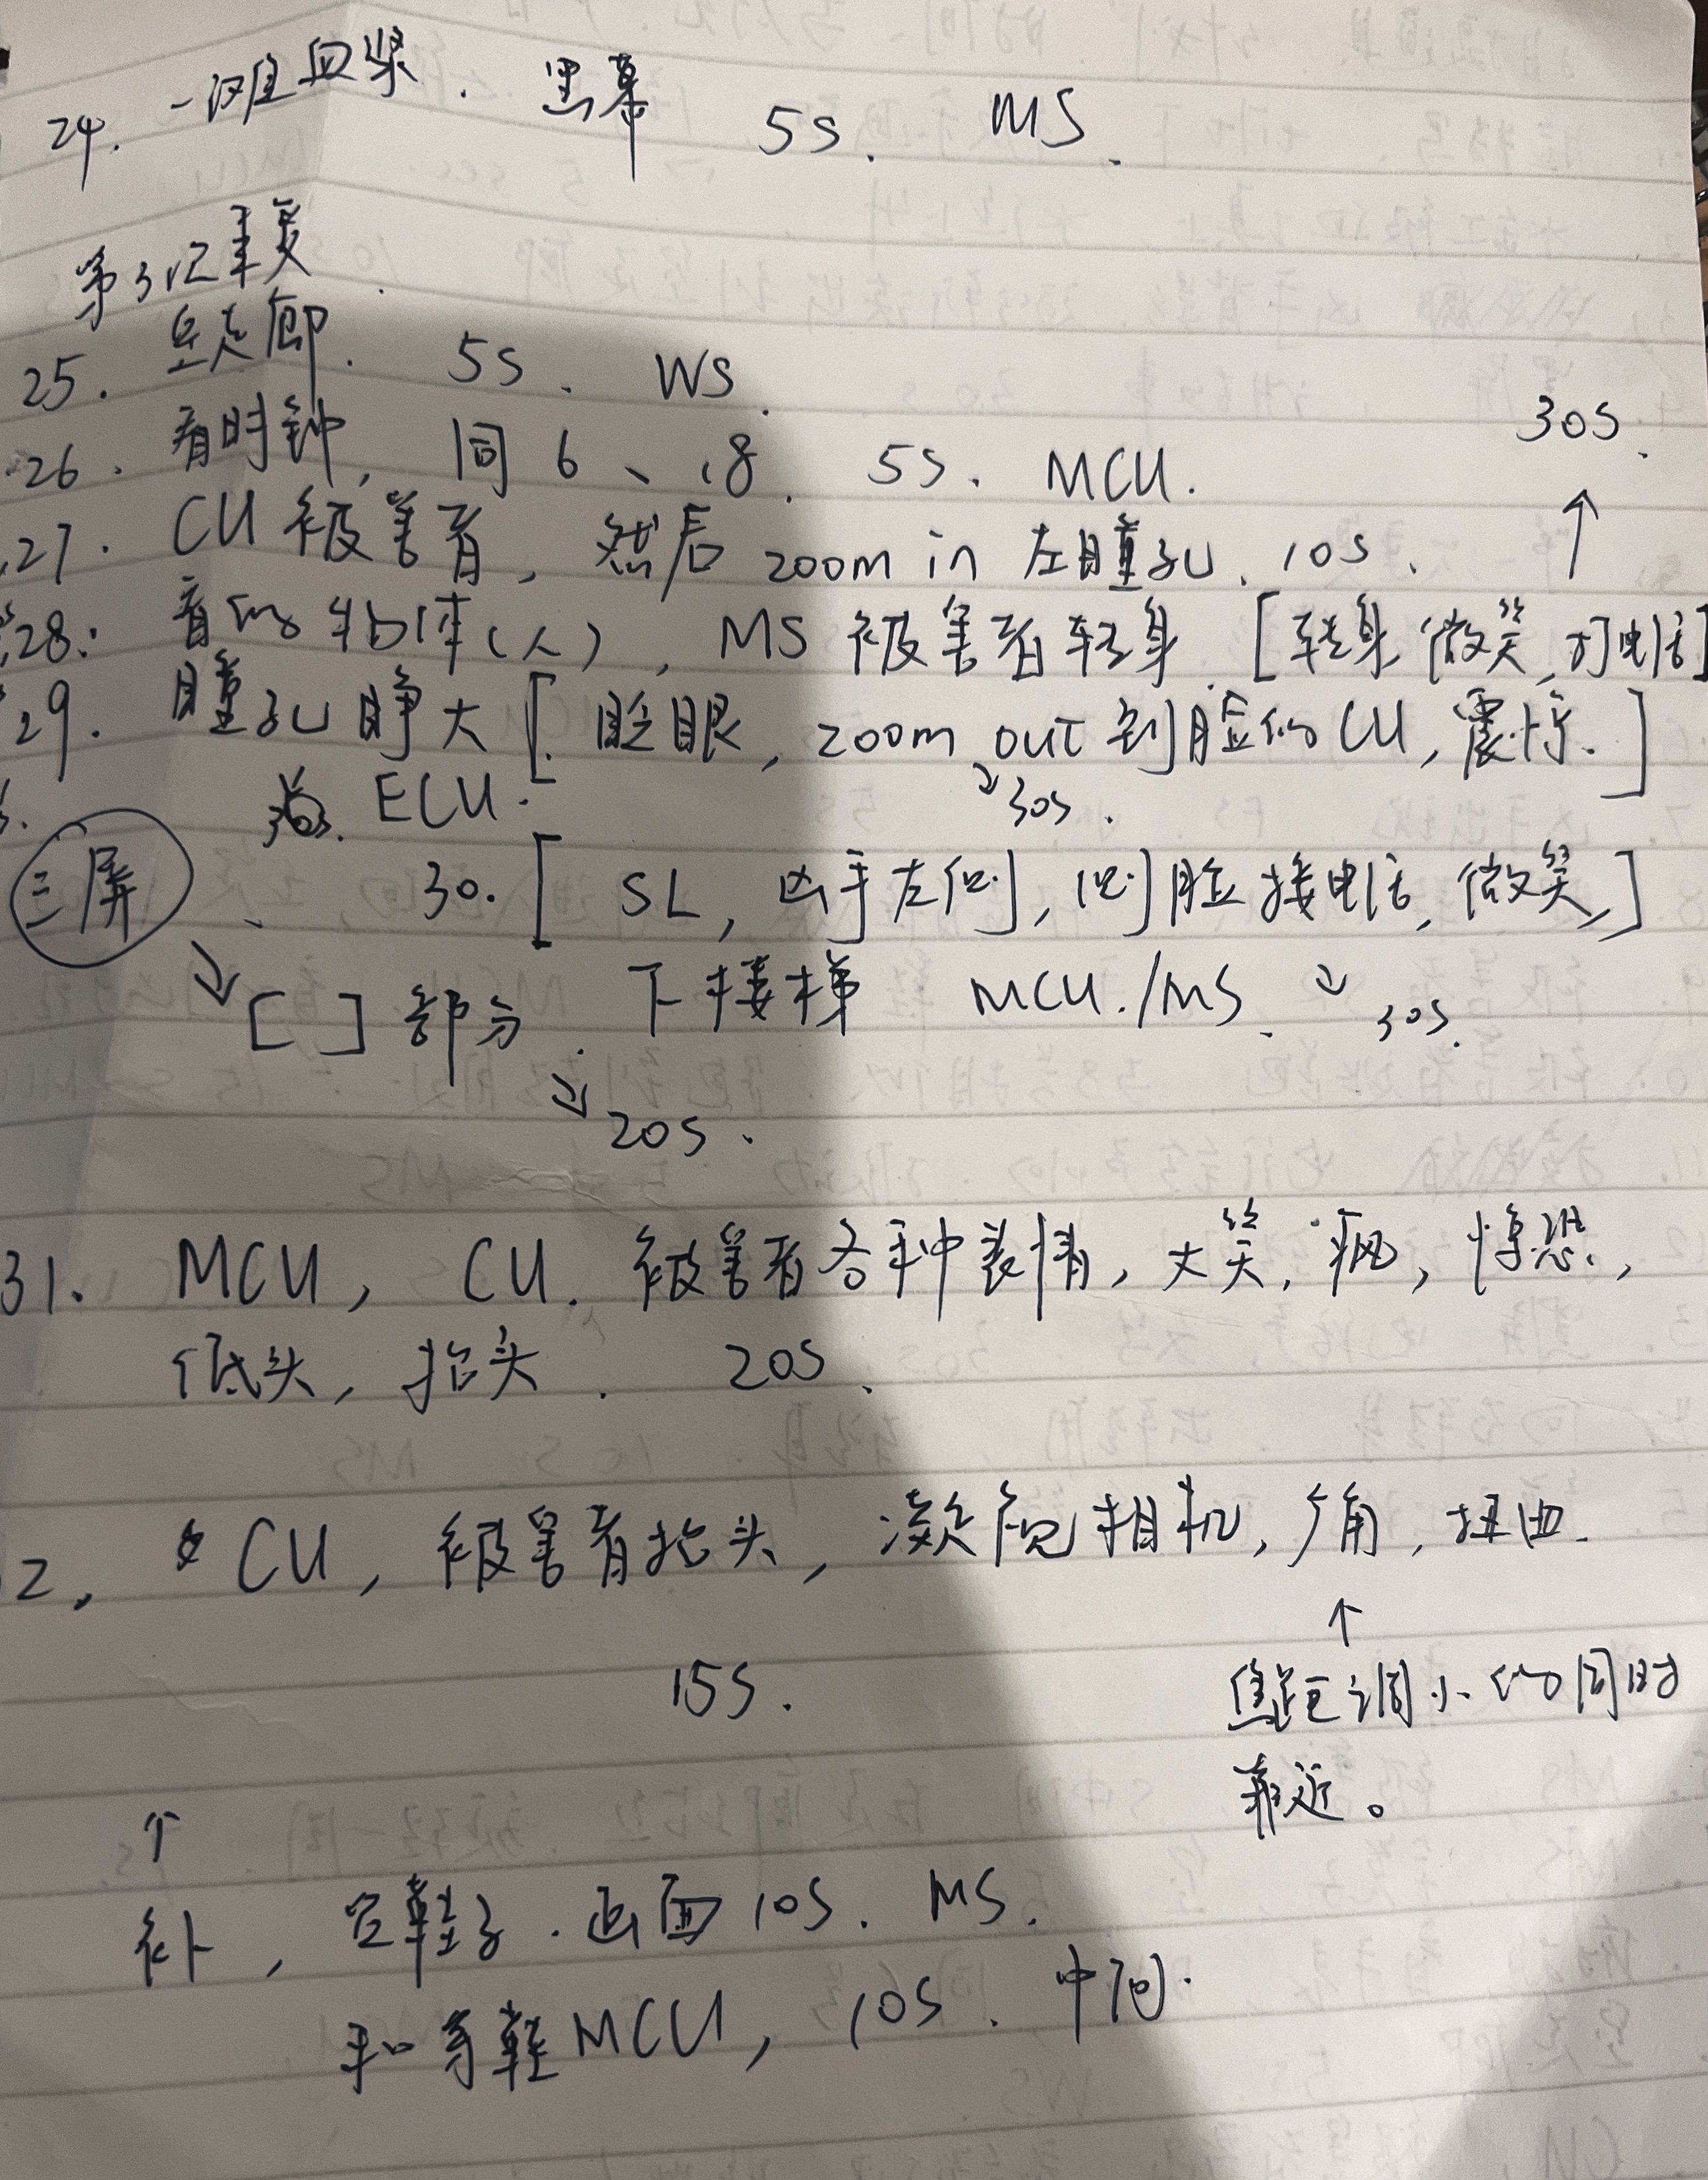 24. 一滩血浆. 黑幕 5S. MS.
第3次重复.
25. 空走廊. 5S. WS.
30S.
26. 看时钟, 同6、18. 5S. MCU.
27. CU 被害者, 然后 zoom in 左瞳孔. 10S. ↑
28. 看的物体(人), MS 被害者转身. [转身, 微笑, 打电话]
29. 瞳孔睁大 [眨眼, zoom out 到脸的CU, 震惊.]
ECU. ↘30S.
三屏 30. [SL, 凶手左侧, 侧脸接电话, 微笑,]
↘ [ ] 部分. 下楼梯 MCU./MS. ↘ 30S.
↘ 20S.
31. MCU, CU. 被害者各种表情, 大笑, 疯, 惊恐,
低头, 抬头. 20S.
2. CU, 被害者抬头, 凝视相机, 广角, 扭曲.
↑
15S. 焦距调小的同时
靠近。
↑
补, 空鞋子. 画面10S. MS.
和等鞋MCU, 10S. 中间.